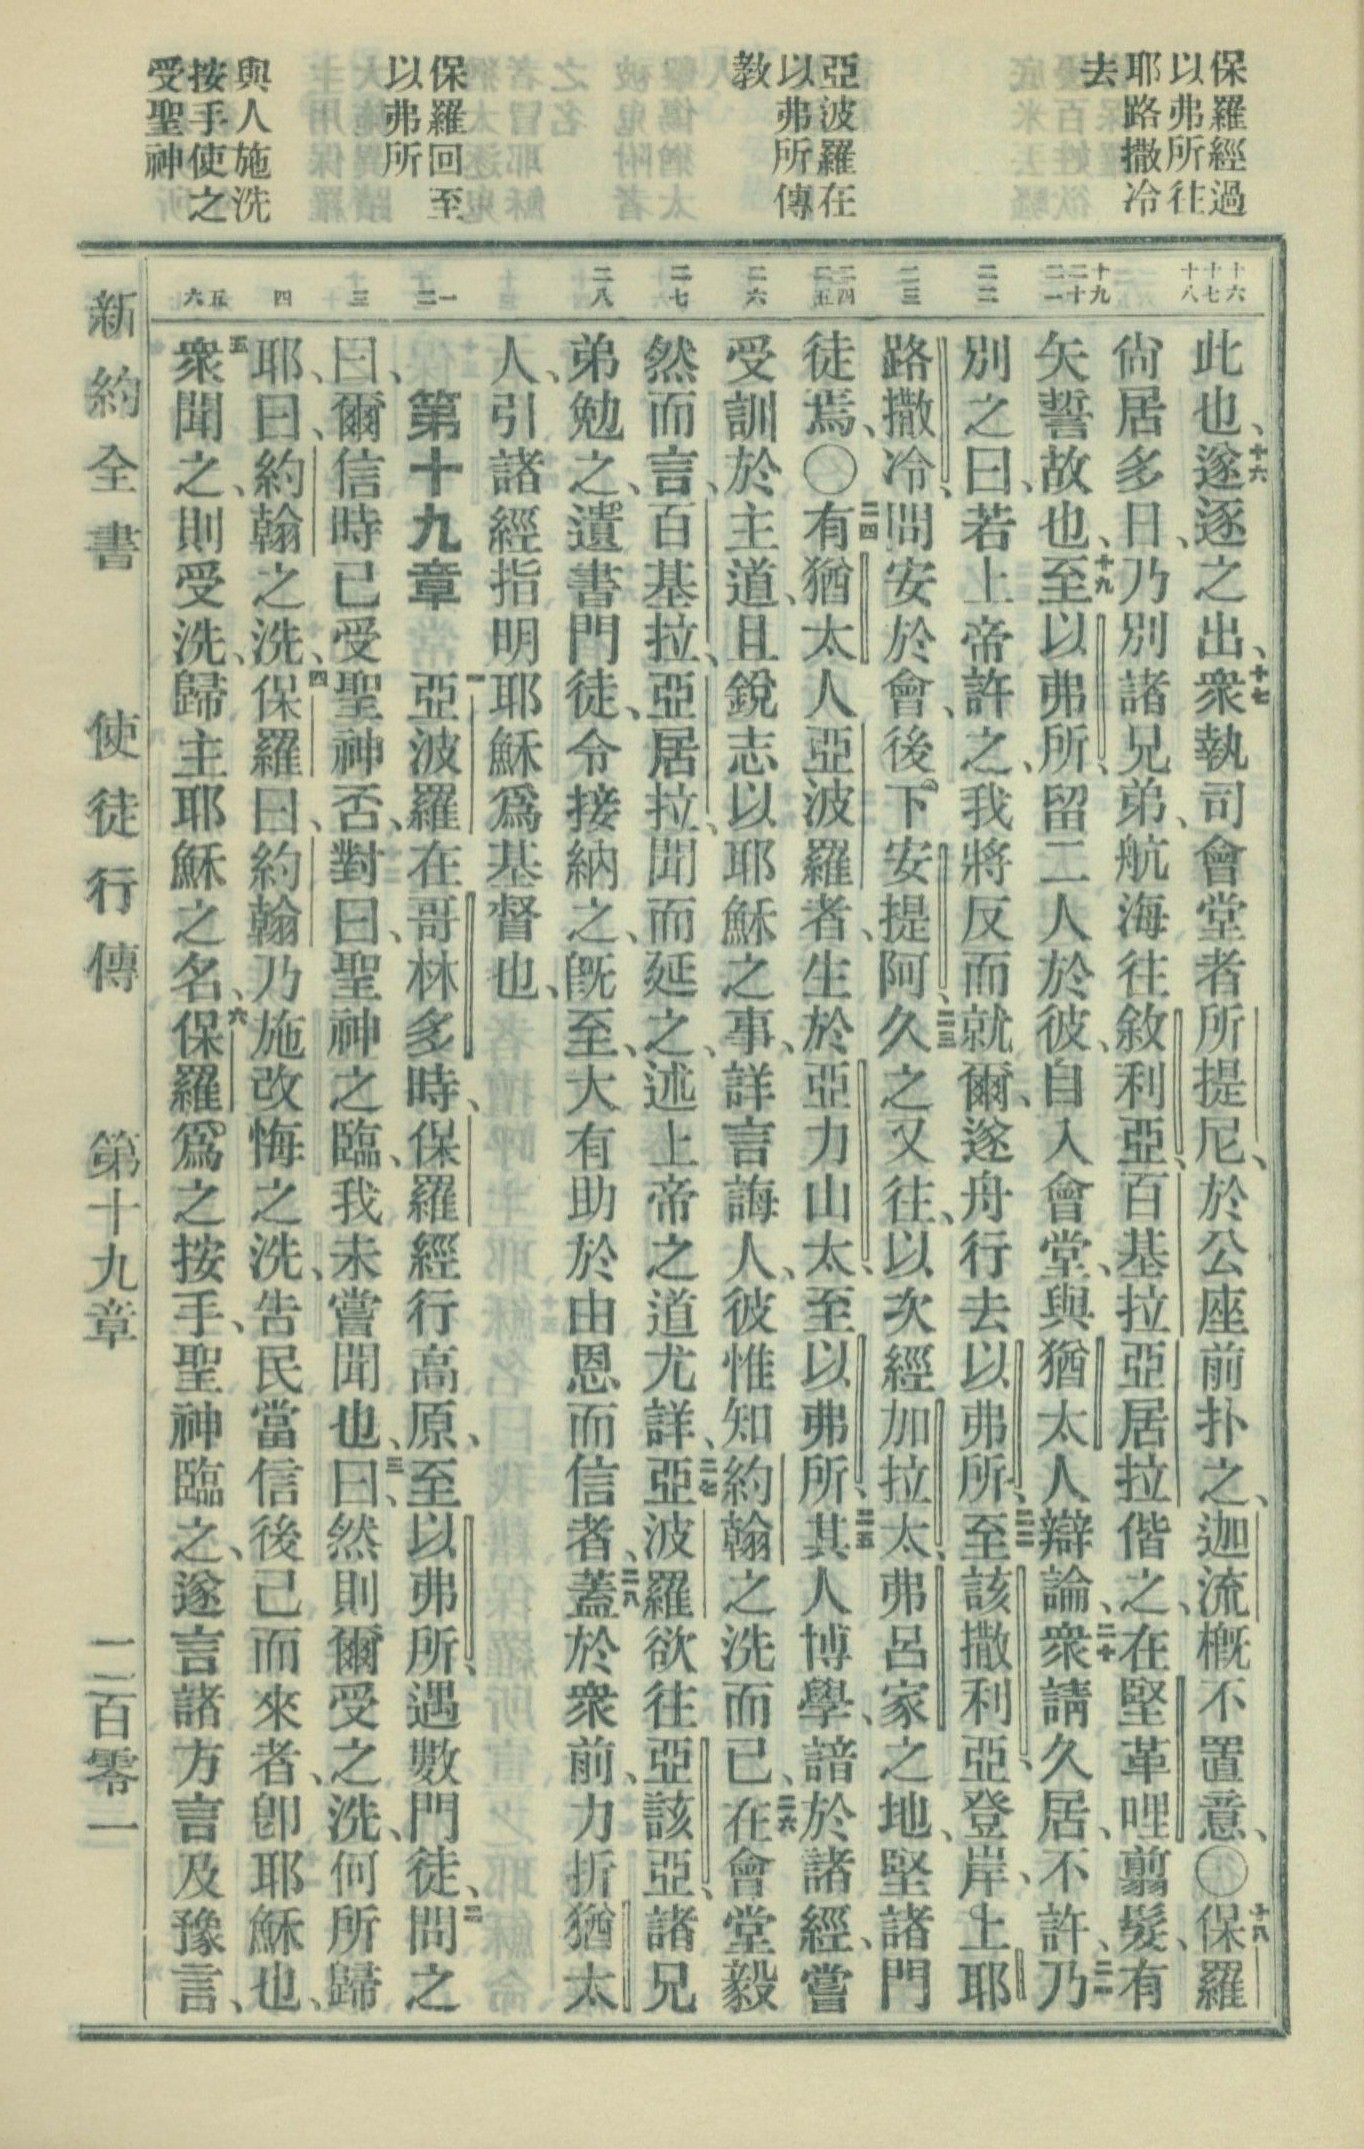 保羅經過
以弗所往
耶路撒冷
去
亞波羅在
以弗所傳
教
保羅回至
以弗所
與人施洗
按手使之
受聖神
十六
十七
十八
十九
二十
二一
二二
二三
二四
二五
二六
二七
二八
一
二
三
四
五
六
此也、十六遂逐之出、十七衆執司會堂者所提尼、於公座前扑之、迦流槪不置意、〇十八保羅
尙居多日、乃別諸兄弟、航海往敘利亞、百基拉亞居拉偕之、在堅革哩翦髮、有
矢誓故也、十九至以弗所、留二人於彼、自入會堂、與猶太人辯論、二十衆請久居、不許、二一乃
別之曰、若上帝許之、我將反而就爾、遂舟行去以弗所、二二至該撒利亞、登岸、上耶
路撒冷、問安於會、後下安提阿、二三久之又往、以次經加拉太、弗呂家之地、堅諸門
徒焉、〇二四有猶太人亞波羅者、生於亞力山太、至以弗所、二五其人博學、諳於諸經、嘗
受訓於主道、且銳志以耶穌之事、詳言誨人、彼惟知約翰之洗而已、二六在會堂毅
然而言、百基拉、亞居拉、聞而延之、述上帝之道尤詳、二七亞波羅欲往亞該亞、諸兄
弟勉之、遺書門徒、令接納之、旣至、大有助於由恩而信者、二八蓋於衆前、力折猶太
人、引諸經指明耶穌爲基督也、
第十九章 一亞波羅在哥林多時、保羅經行高原、至以弗所、遇數門徒、二問之
曰、爾信時已受聖神否、對曰、聖神之臨、我未嘗聞也、三曰、然則爾受之洗、何所歸
耶、曰、約翰之洗、四保羅曰、約翰乃施改悔之洗、告民當信後己而來者、卽耶穌也、
五衆聞之、則受洗、歸主耶穌之名、六保羅爲之按手、聖神臨之、遂言諸方言及豫言、
新約全書 使徒行傳 第十九章 二百零一